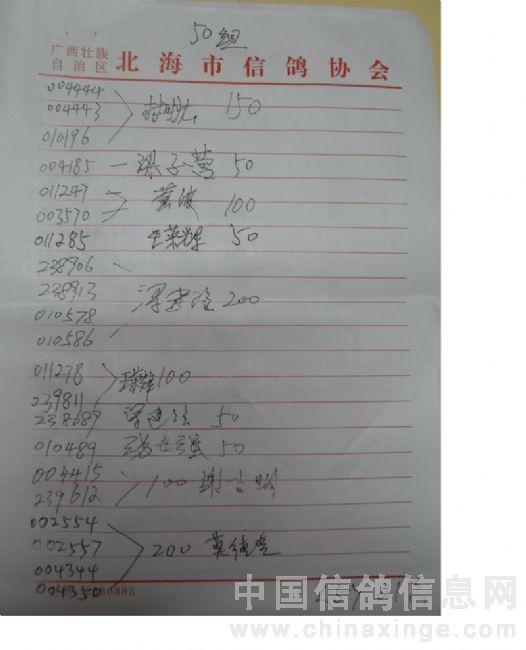 50组
广西壮族
自治区 北海市信鸽协会
004444
004443 150
010196
004185 一梁子营 50
011247
003570 100
011285 王荣辉 50
238906
238913 200
010578
010586
011278 100
239811
238689 50
010489 50
004415 100
239612
002554
002557 200
004344
004350
60885
中国信鸽信息网
www.chinaxinge.com